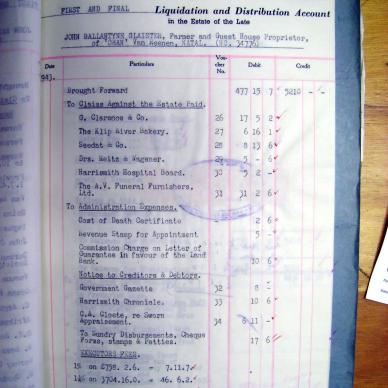 FIRST AND FINAL Liquidation and Distribution Account
in the Estate of the Late
JOHN BALLANTYNE GLAISTER, Farmer and Guest House Proprietor,
of "OBAN" Van Reenen, NATAL. (NO. 34776)
Date Particulars Vou- cher No. Debit Credit
1943.
Brought Forward 477 15 7 5210 - -
To Claims Against the Estate Paid.
G. Clarence & Co. 26 17 5 2
The Klip River Bakery. 27 6 16 1
Seedat & Co. 28 8 13 6
Drs. Beitz & Wagener. 29 5 - 6
Harrismith Hospital Board. 30 5 2 -
The A.V. Funeral Furnishers,
Ltd. 31 31 2 6
To Administration Expenses.
Cost of Death Certificate - 2 6
Revenue Stamp for Appointment 5 -
Commission Charge on Letter of
Guarantee in favour of the Land
Bank. 10 6
Notice to Creditors & Debtors.
Government Gazette 32 8 -
Harrismith Chronicle. 33 10 6
C.A. Cloete, re Sworn
Appraisement. 34 6 11 -
To Sundry Disbursements, Cheque
Forms, stamps & Petties. 17 6
EXECUTORS FEES.
1% on £798. 2.6. = 7.11.7
1¼% on 3704.16.0. = 46. 6.2.